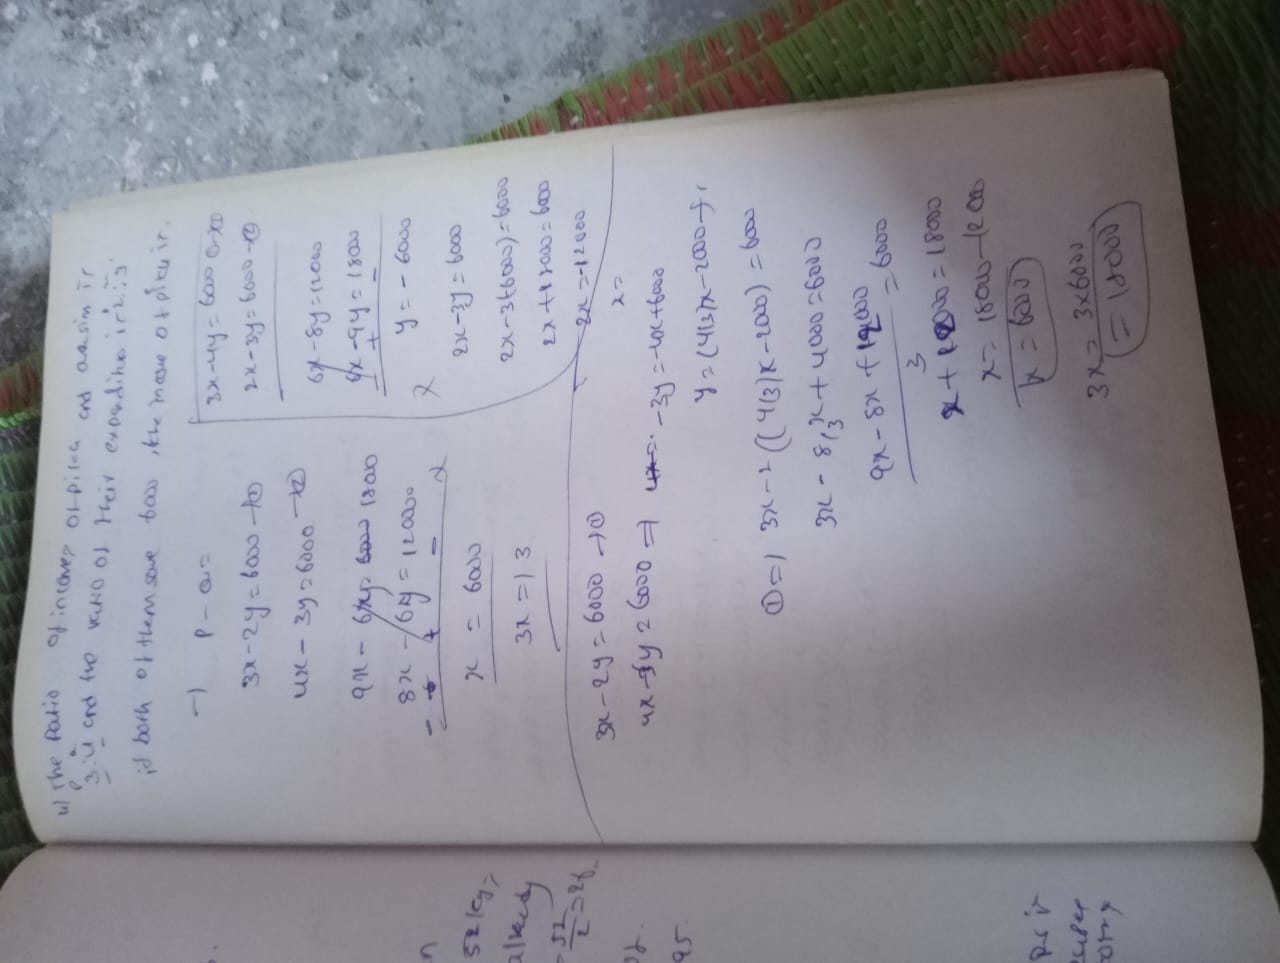 4) The Ratio of incomes of pika and asim ir
p a
3:4 and the ratio of their expenditure ir 2:3
if both of them save 6000, the income of pika ir.
3x-2y=6000 →①
4x-3y=6000 →②
9x-6y=18000
8x-6y=12000
x = 6000
3x=13
3x-4y=6000 →①
2x-3y=6000 →②
6x-8y=12000
6x-9y=18000
y=-6000
2x-3y=6000
2x-3(6000)=6000
2x+18000=6000
2x=-12000
x=
3x-2y=6000 →①
4x-3y=6000 ⇒ -3y=-4x+6000
y=(4/3)x-2000 →
①⇒ 3x-2((4/3)x-2000)=6000
3x-8/3x+4000=6000
9x-8x+12000
3
=6000
x+12000=18000
x=18000-12000
x=6000
3x=3x6000
=18000
52 kg,
already
=52/2=26
95.